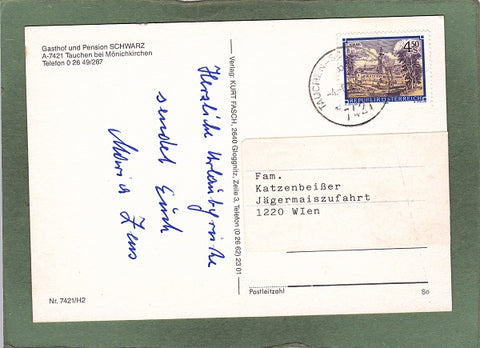 Gasthof und Pension SCHWARZ
A-7421 Tauchen bei Mönichkirchen
Telefon 0 26 49/287
Herzliche Urlaubsgrüße
sendet Euch
Maria
Nr. 7421/H2
Verlag: KURT FASCH, 2640 Gloggnitz, Zeile 3, Telefon (0 26 62) 23 01
4.50
REPUBLIK ÖSTERREICH
TAUCHEN
7421
Fam.
Katzenbeißer
Jägermaiszufahrt
1220 WIen
Postleitzahl
So